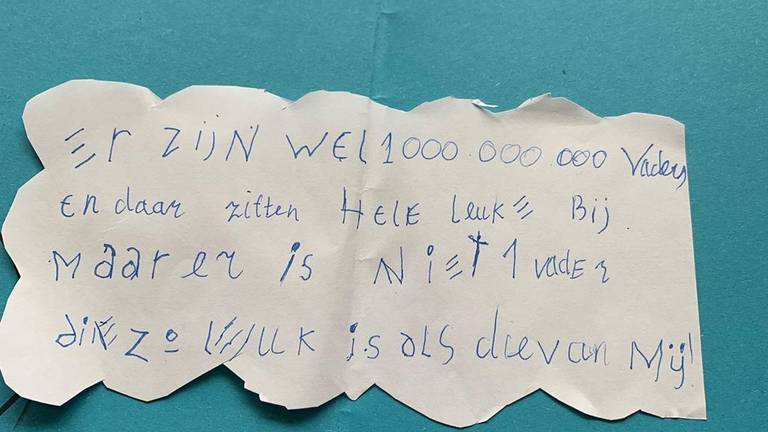 Er ZijN WEL 1000.000.000 Vaders
En daar zitten HELE leukE Bij.
Maar er is NiET 1 vadEr
diE zo lEUK is als die van Mij!